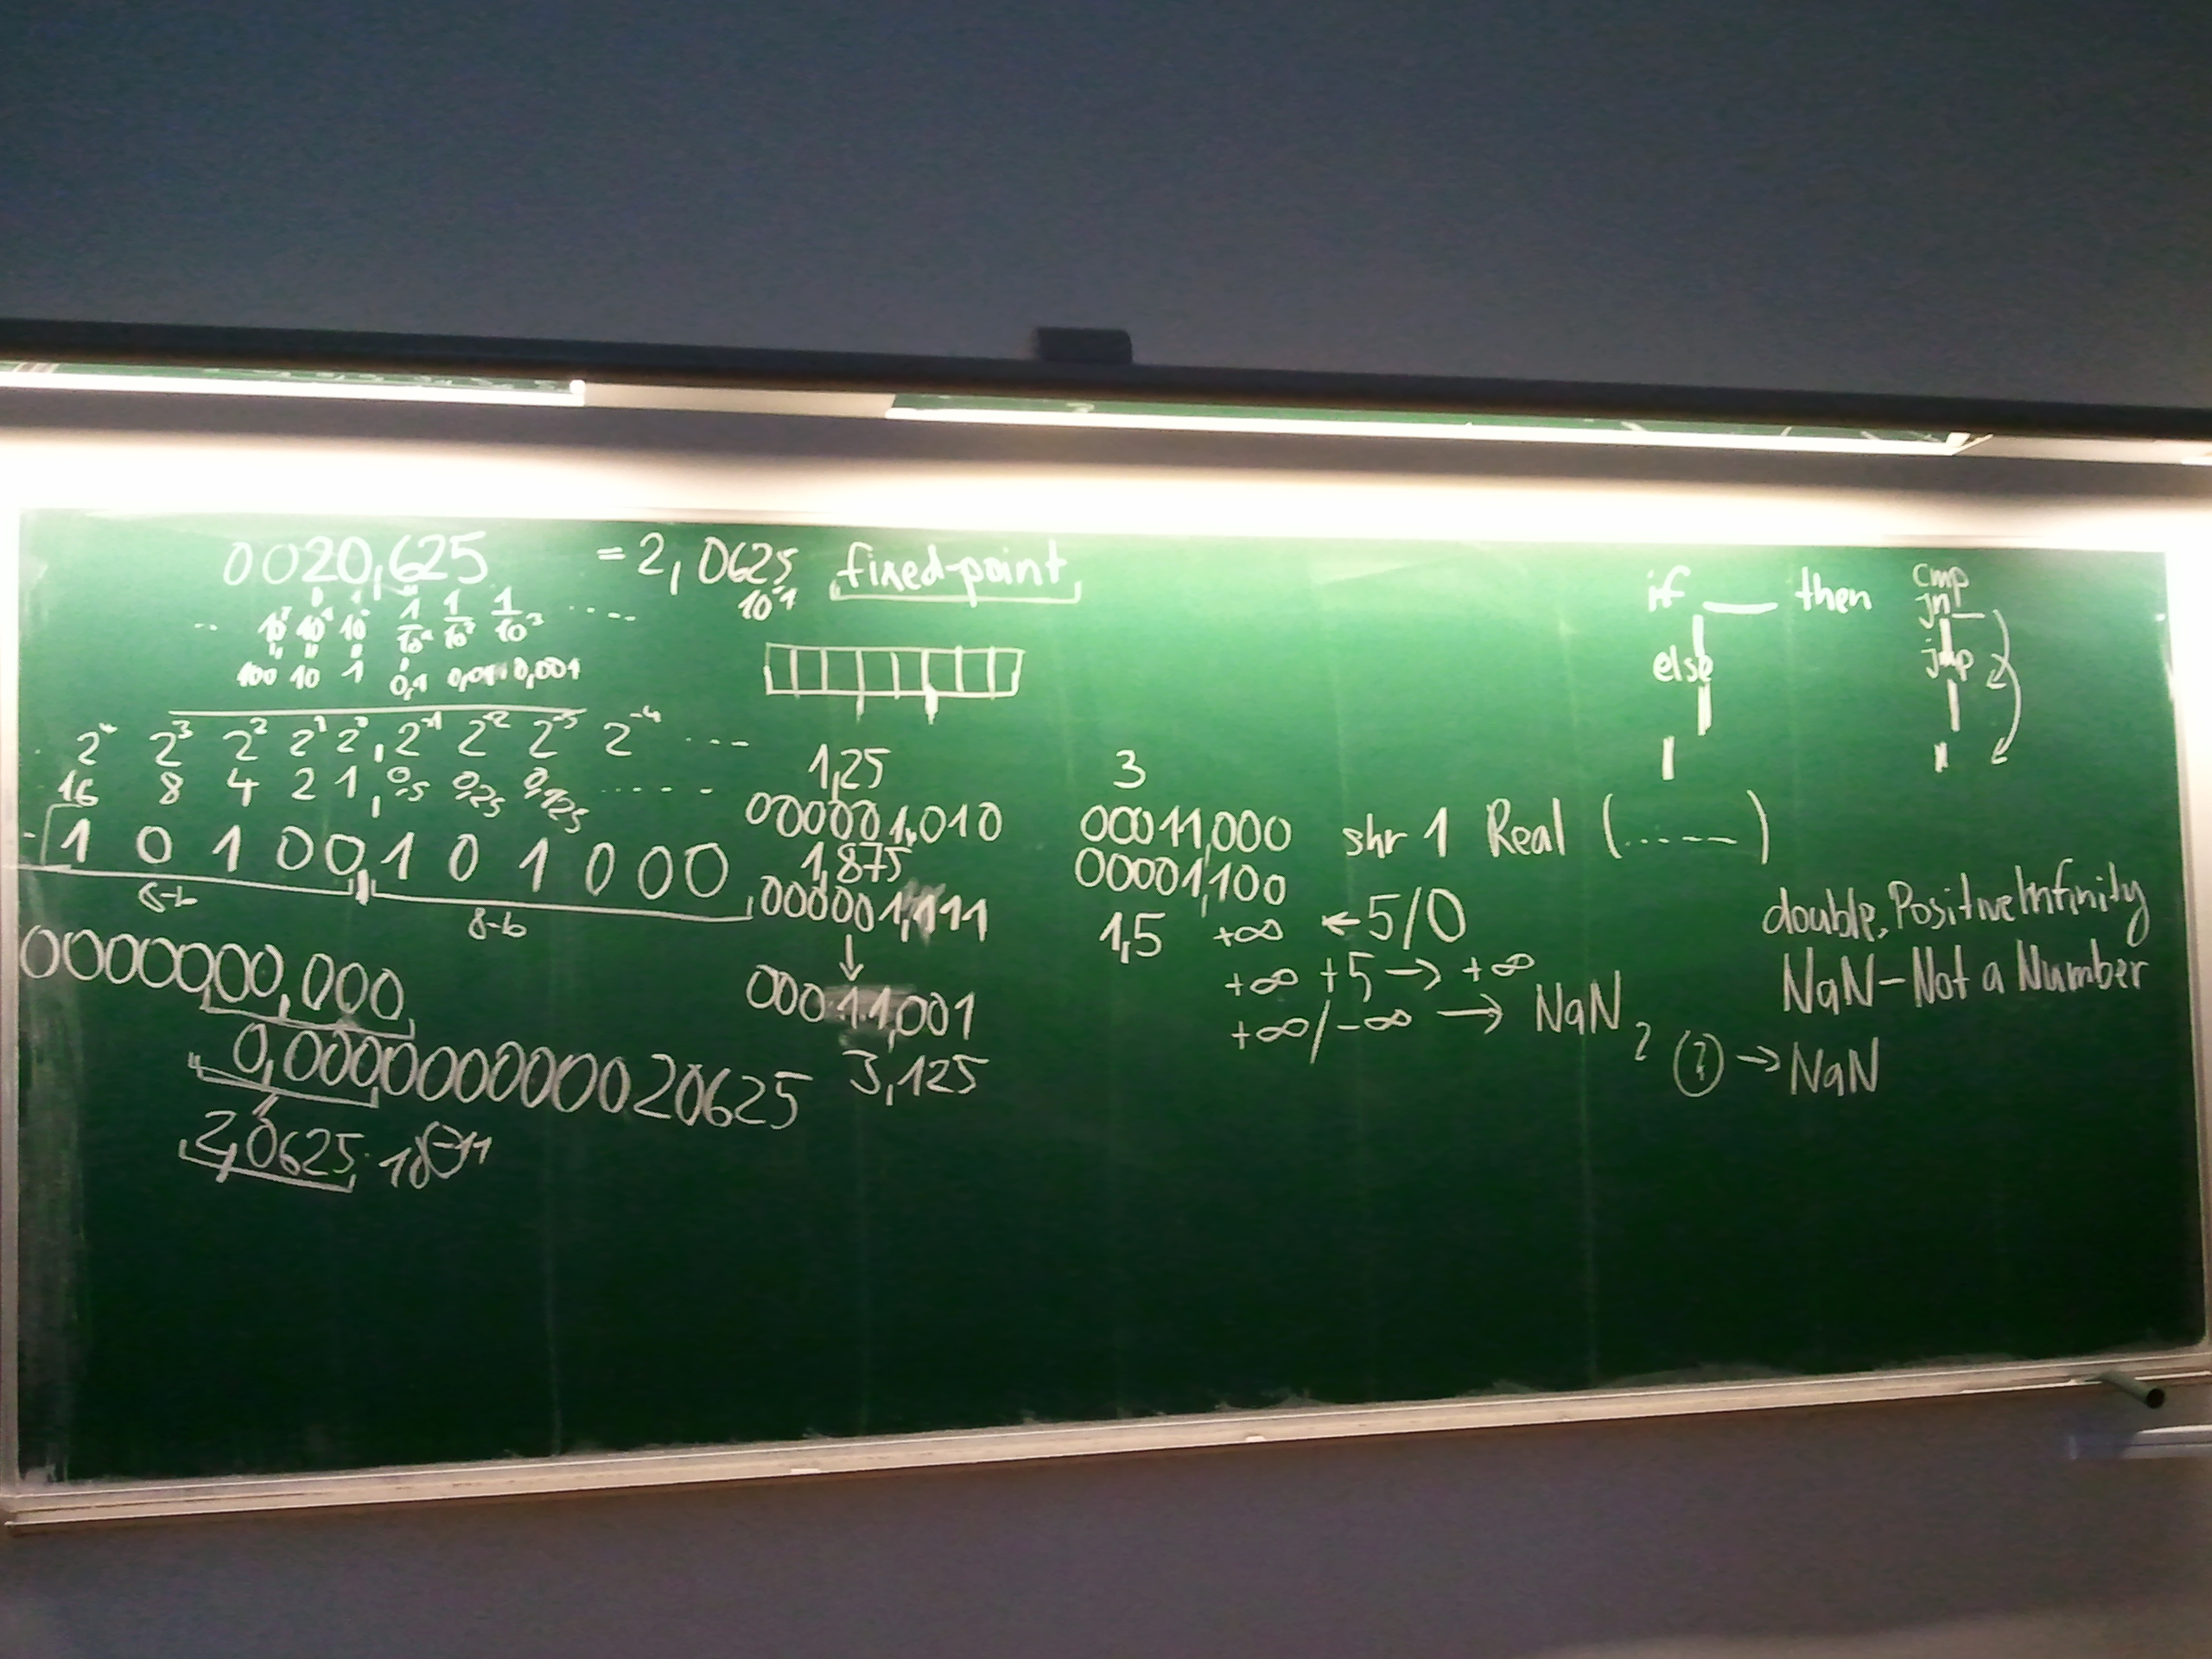 0020,625 = 2,0625 fixed-point
10¹
.. 10² 10¹ 10⁰ 1/10¹ 1/10² 1/10³ ....
100 10 1 0,1 0,01 0,001
2⁴ 2³ 2² 2¹ 2⁰, 2⁻¹ 2⁻² 2⁻³ 2⁻⁴ ...
16 8 4 2 1, 0,5 0,25 0,125 .....
1 0 1 0 0, 1 0 1 0 0 0
8-b
8-b
0000000,000
0,00000000000020625
2,0625 · 10⁻¹¹
1,25
000001,010
1,875
000001,111
↓
00011,001
3,125
3
00011,000 shr 1 Real (.....)
00001,100
1,5 +∞ ← 5/0
+∞ +5 → +∞
+∞/-∞ → NaN
? → NaN
if __ then
else
cmp
jn_
jmp
double.PositiveInfinity
NaN - Not a Number